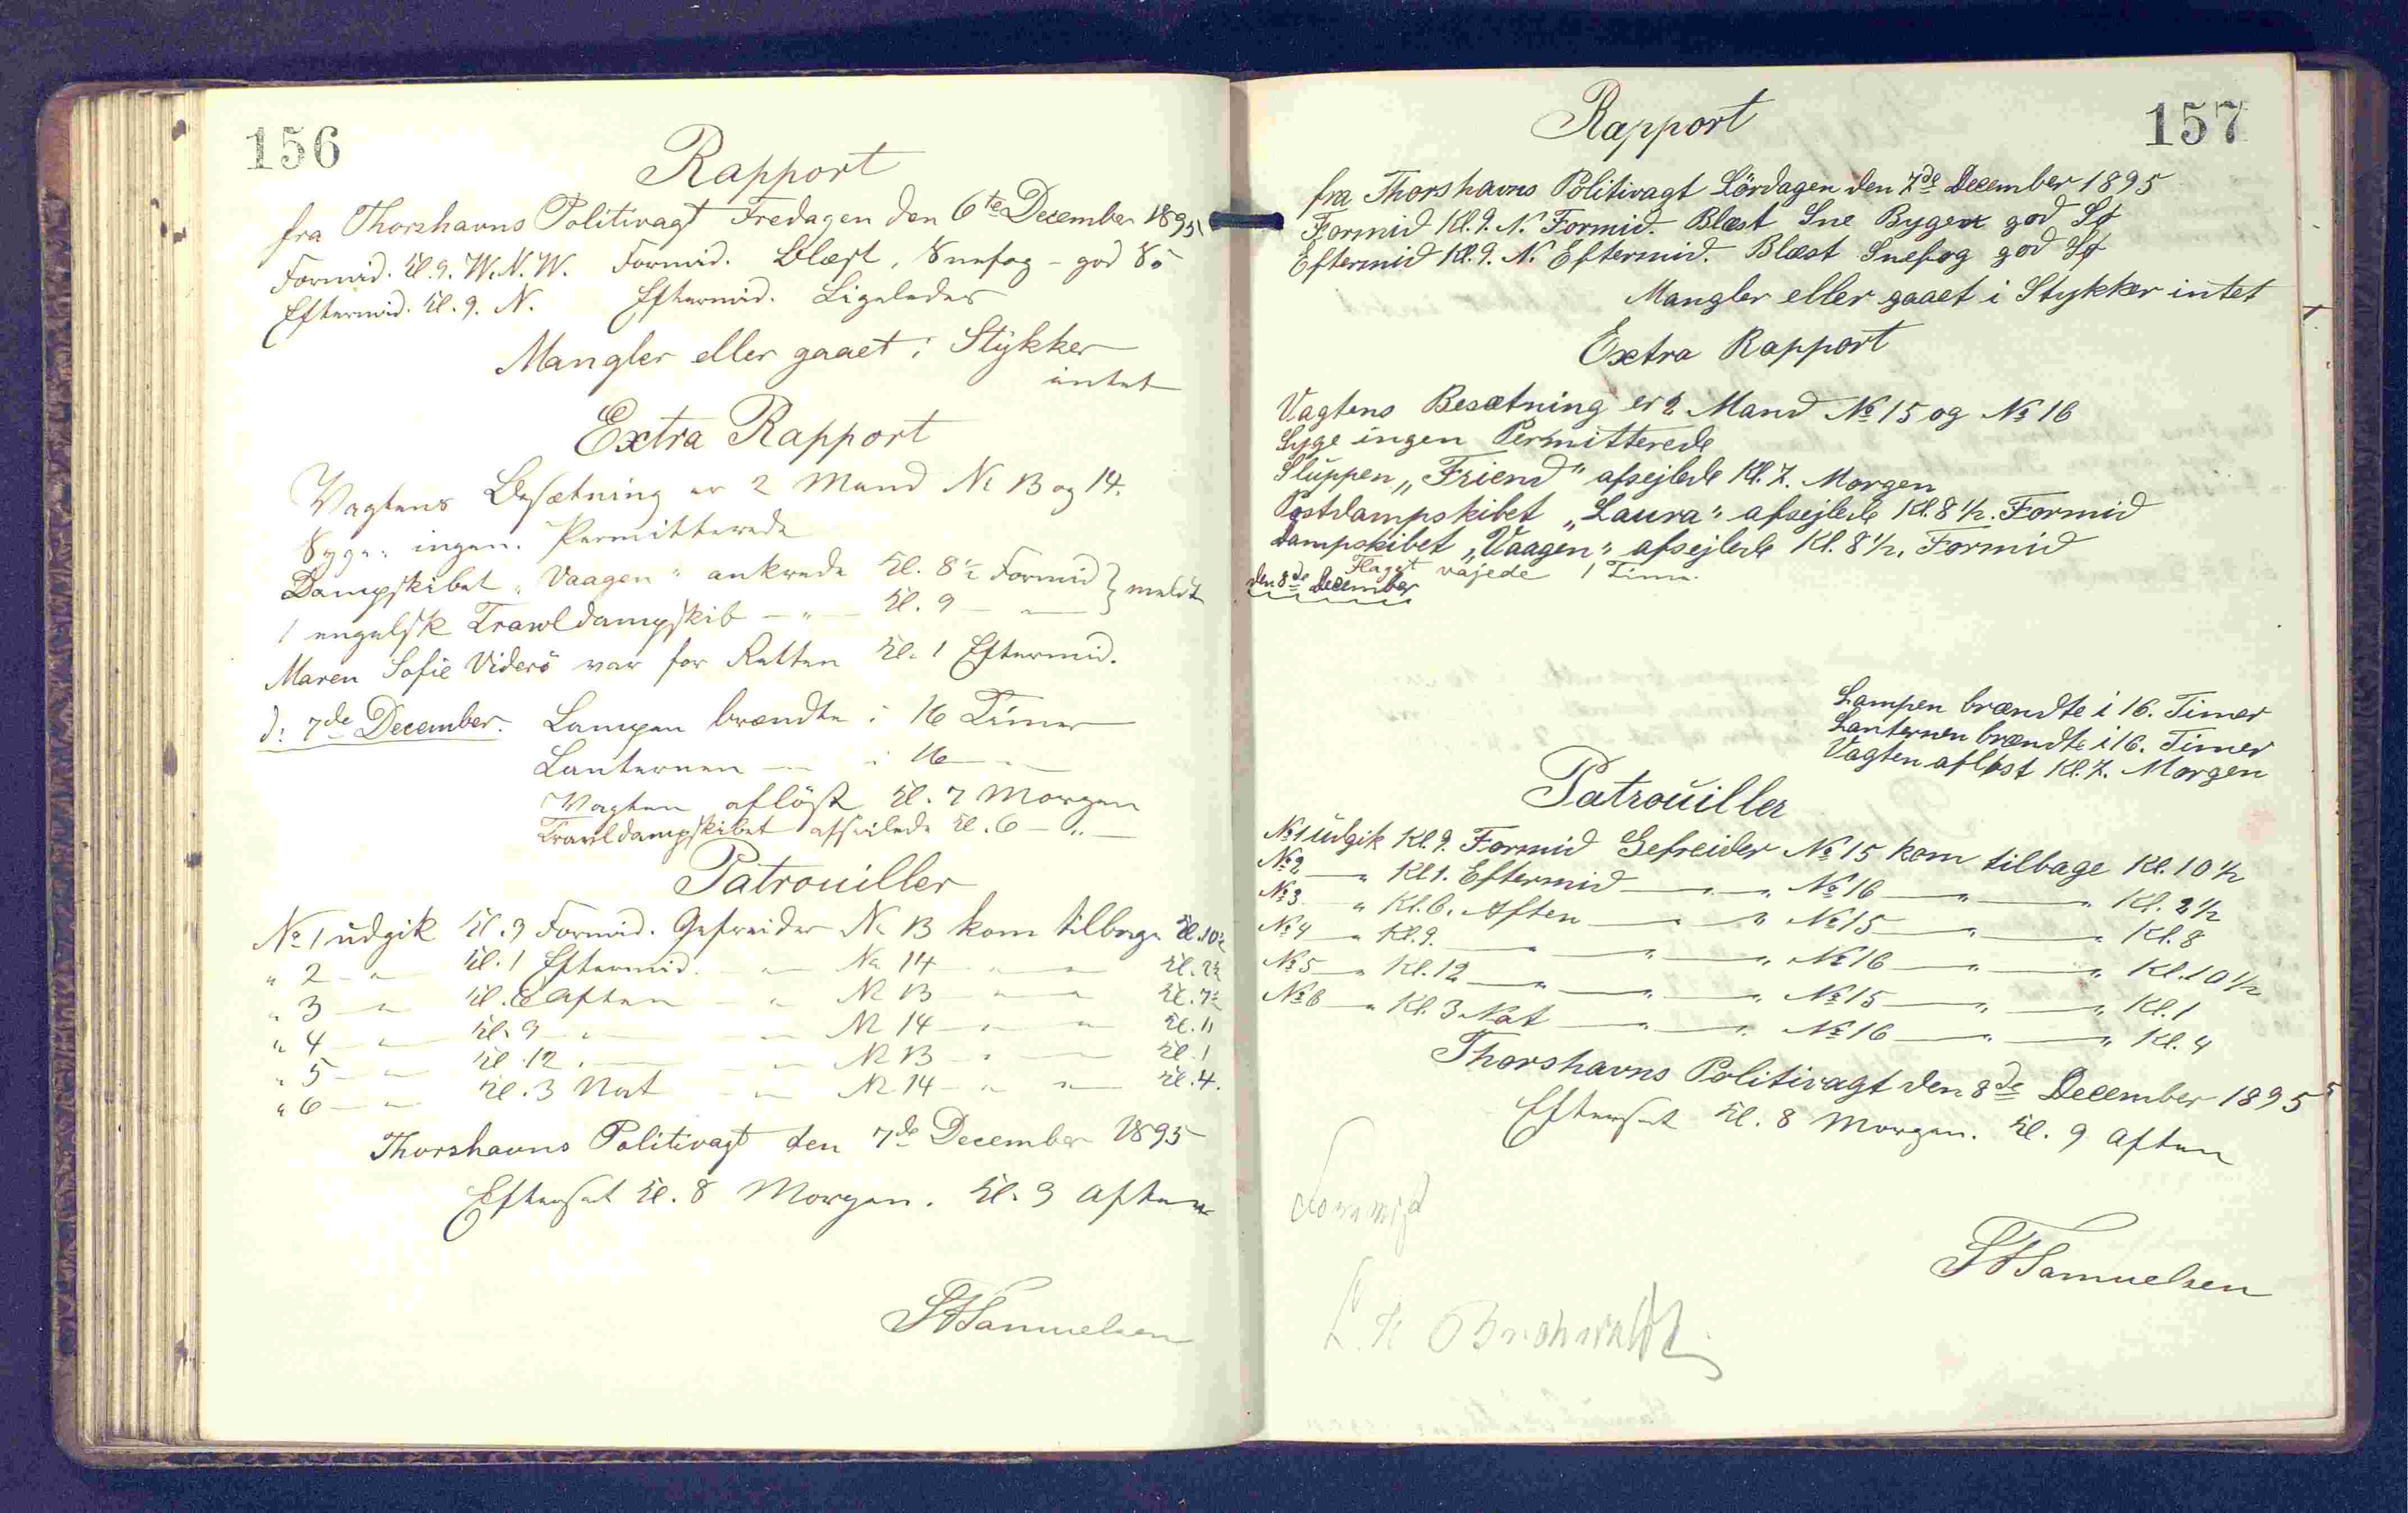 156
Rapport
fra Thorshavns Politivagt Fredagen den 6te December 1895
Formid. Kl. 9. W.N.W. Formid. Blæst, Snefog - god Sö
Eftermid. Kl. 9. N. Eftermid. Ligeledes
Mangler eller gaaet i Stykker
intet
Extra Rapport
Vagtens Besætning er 2 Mand No 13 og 14.
Syge: ingen. Permitterede
Dampskibet "Vaagen" ankrede Kl. 8½ Formid } meldt
1 engelsk Trawldampskib — " — Kl. 9 — " —
Maren Sofie Viderö var for Retten Kl. 1 Eftermid.
d: 7de December. Lampen brændte i 16 Timer
Lanternen — i 16 — " —
Vagten aflöst Kl. 7 Morgen
Trawldampskibet afseilede Kl. 6 — " —
Patrouiller
No 1 udgik Kl. 9 Formid. Gefreider No 13 kom tilbage Kl. 10½
" 2 — " — Kl. 1 Eftermid. — " — No 14 — " — " — Kl. 2½
" 3 — " — Kl. 6 Aften — " — No 13 — " — " — Kl. 7½
" 4 — " — Kl. 9 — " — — " — No 14 — " — " — Kl. 11
" 5 — " — Kl. 12 — " — — " — No 13 — " — " — Kl. 1
" 6 — " — Kl. 3 Nat — " — No 14 — " — " — Kl. 4.
Thorshavns Politivagt den 7de December 1895
Efterset Kl. 8 Morgen. Kl. 9 Aften
Samuelsen
157
Rapport
fra Thorshavns Politivagt Lördagen den 7de December 1895
Formid Kl. 9. N. Formid. Blæst Sne Byger god Sø
Eftermid Kl. 9. N. Eftermid. Blæst Snefog god Sø
Mangler eller gaaet i Stykker intet
Extra Rapport
Vagtens Besætning er 2 Mand No 15 og No 16
Syge ingen Permitterede
Sluppen „Friend" afsejlede Kl. 7. Morgen
Postdampskibet „Laura" afsejlede Kl. 8 ½. Formid
Dampskibet „Vaagen" afsejlede Kl. 8 ½. Formid
Flaget vajede 1 Time.
den 8de December
Lampen brændte i 16. Timer
Lanternen brændte i 16. Timer
Vagten afløst Kl. 7. Morgen
Patrouiller
No 1 udgik Kl. 9. Formid Gefreider No 15 kom tilbage Kl. 10 ½
No 2 — " Kl 1. Eftermid — " — " No 16 — " — " Kl. 2 ½
No 3 " Kl. 6. Aften — " — " No 15 — " — " Kl. 8
No 4 — " Kl. 9. — " — " — " No 16 — " — " Kl. 10 ½
No 5 — " Kl. 12 — " — " — " No 15 — " — " Kl. 1
No 6 — " Kl. 3 Nat — " — " No 16 — " — " Kl. 4
Thorshavns Politivagt den 8de December 1895
Efterset Kl. 8 Morgen. Kl. 9 Aften
Samuelsen